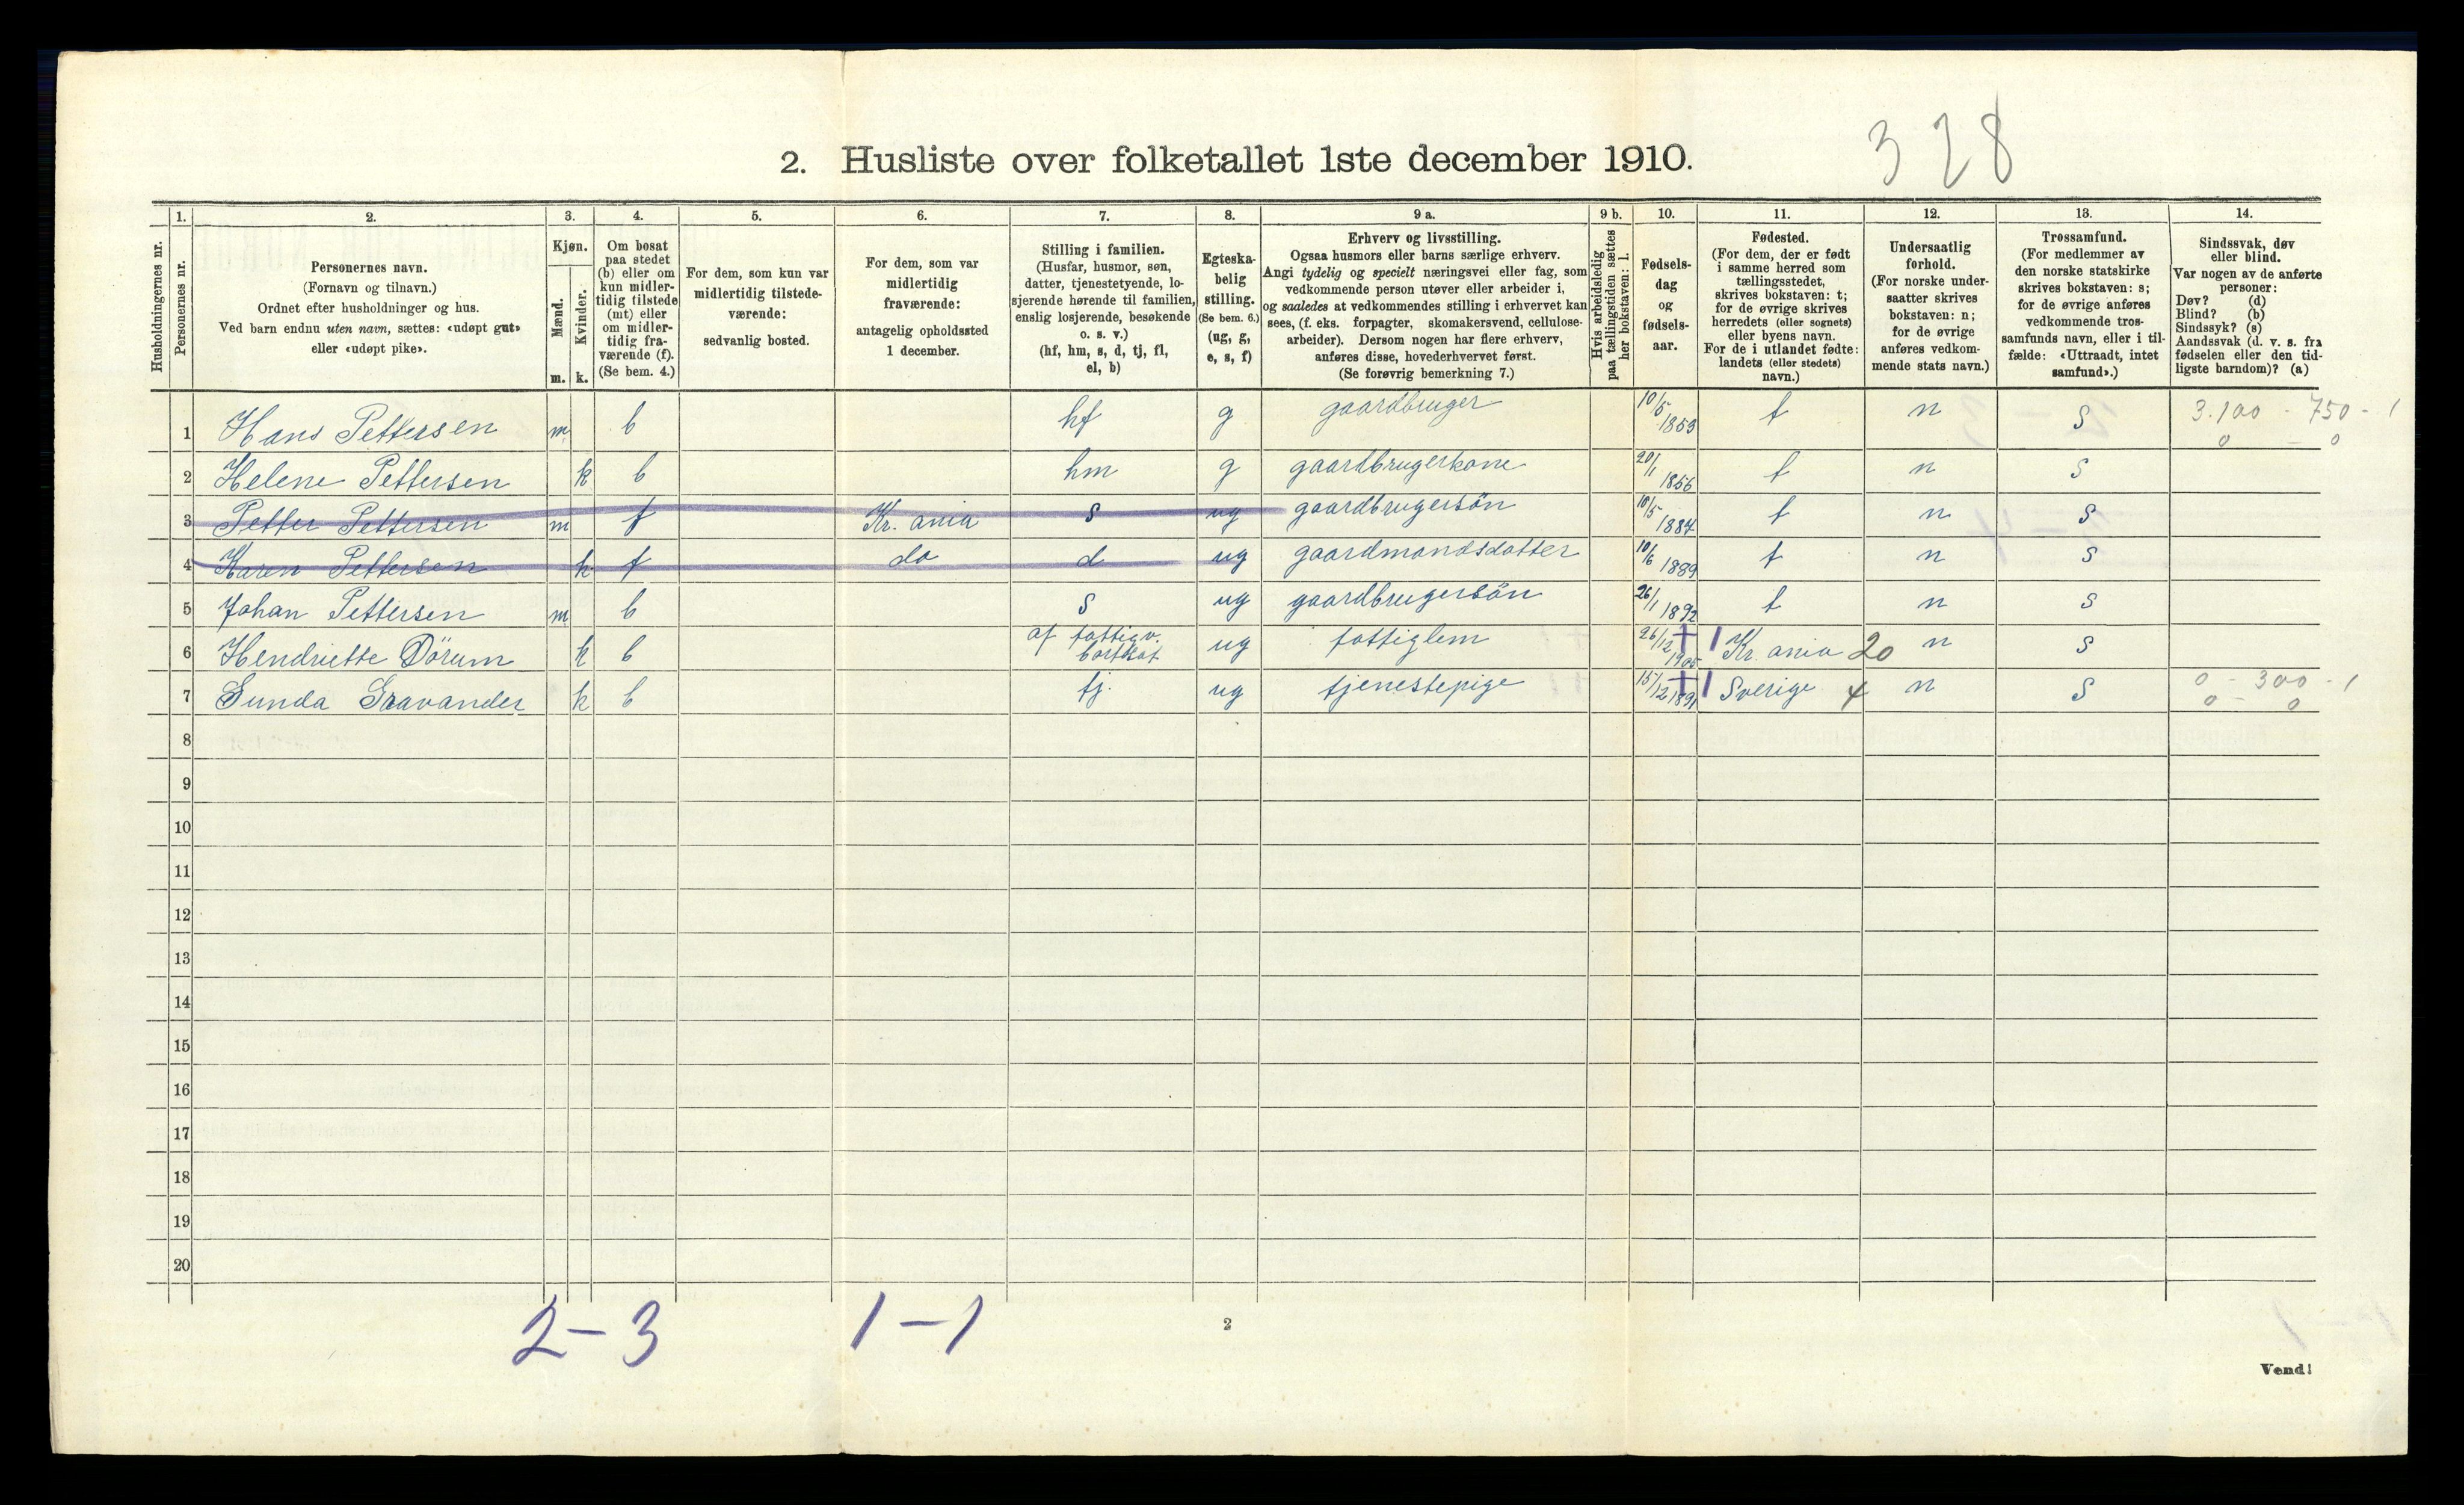 328
2. Husliste over folketallet 1ste december 1910.
Husholdningernes nr.
1.
Personernes nr.
2.
Personernes navn.
(Fornavn og tilnavn.)
Ordnet efter husholdninger og hus.
Ved barn endnu uten navn, sættes: «udøpt gut»
eller «udøpt pike».
3.
Kjøn.
Mænd.
Kvinder.
m. k.
4.
Om bosat
paa stedet
(b) eller om
kun midler-
tidig tilstede
(mt) eller
om midler-
tidig fra-
værende (f).
(Se bem. 4.)
5.
For dem, som kun var
midlertidig tilstede-
værende:
sedvanlig bosted.
6.
For dem, som var
midlertidig
fraværende:
antagelig opholdssted
1 december.
7.
Stilling i familien.
(Husfar, husmor, søn,
datter, tjenestetyende, lo-
sjerende hørende til familien,
enslig losjerende, besøkende
o. s. v.)
(hf, hm, s, d, tj, fl,
el, b)
8.
Egteska-
belig
stilling.
(Se bem. 6.)
(ug, g,
e, s, f)
9 a.
Erhverv og livsstilling.
Ogsaa husmors eller barns særlige erhverv.
Angi tydelig og specielt næringsvei eller fag, som
vedkommende person utøver eller arbeider i,
og saaledes at vedkommendes stilling i erhvervet kan
sees, (f. eks. forpagter, skomakersvend, cellulose-
arbeider). Dersom nogen har flere erhverv,
anføres disse, hovederhvervet først.
(Se forøvrig bemerkning 7.)
9 b.
Hvis arbeidsledig
paa tællingstiden sættes
her bokstaven: l.
10.
Fødsels-
dag
og
fødsels-
aar.
11.
Fødested.
(For dem, der er født
i samme herred som
tællingsstedet,
skrives bokstaven: t;
for de øvrige skrives
herredets (eller sognets)
eller byens navn.
For de i utlandet fødte:
landets (eller stedets)
navn.)
12.
Undersaatlig
forhold.
(For norske under-
saatter skrives
bokstaven: n;
for de øvrige
anføres vedkom-
mende stats navn.)
13.
Trossamfund.
(For medlemmer av
den norske statskirke
skrives bokstaven: s;
for de øvrige anføres
vedkommende tros-
samfunds navn, eller i til-
fælde: «Uttraadt, intet
samfund».)
14.
Sindssvak, døv
eller blind.
Var nogen av de anførte
personer:
Døv? (d)
Blind? (b)
Sindssyk? (s)
Aandssvak (d. v. s. fra
fødselen eller den tid-
ligste barndom)? (a)
1 Hans Pettersen m b hf g gaardbruger 10/5 1853 t n s 3.100 - 750 - 1
0 - 0
2 Helene Pettersen k b hm g gaardbrugerkone 20/1 1856 t n s
3 Petter Pettersen m f Kr. ania s ug gaardbrugersön 10/5 1884 t n s
4 Karen Pettersen k f do d ug gaardmandsdatter 10/6 1889 t n s
5 Johan Pettersen m b s ug gaardbrugersön 26/1 1892 t n s
6 Hendriette Dörum k b af fattigv. bortsat ug fattiglem 26/12 1905 Kr. ania 20 n s
7 Gunda Gravander k b tj. ug tjenestepige 15/12 1891 Sverige 4 n s 0 - 300 - 1
0 - 0
8
9
10
11
12
13
14
15
16
17
18
19
20
2-3
1-1
2
Vend!